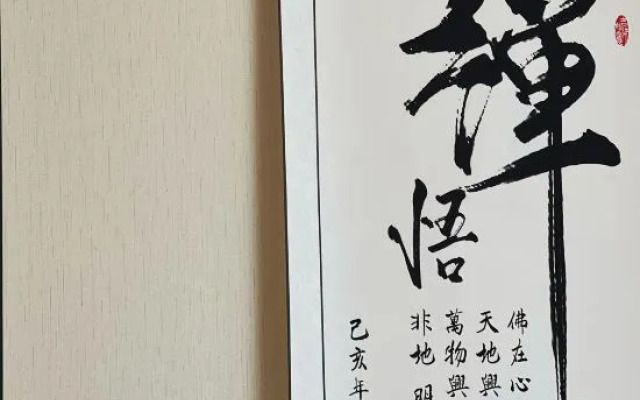 禪
悟
佛在心
天地與
萬物與
非地明
己亥年